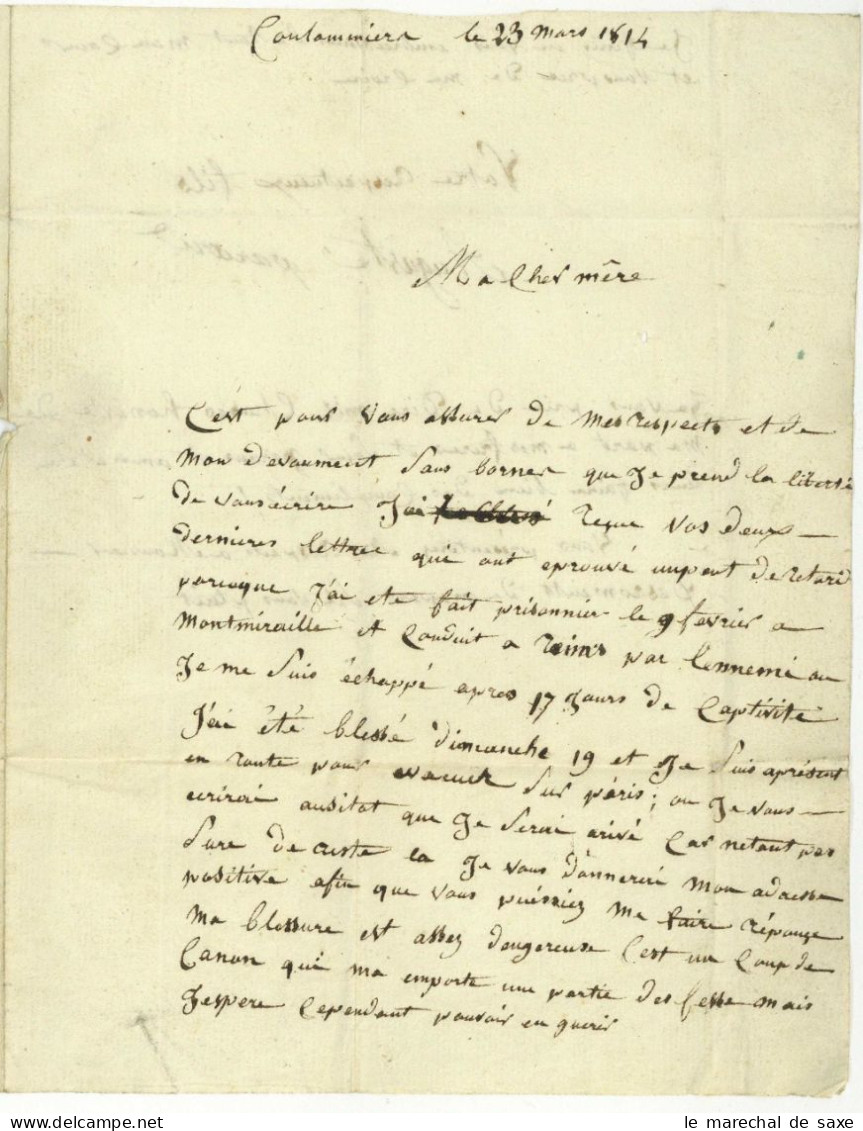 Coulommiers le 23 Mars 1814
Ma Cher mêre
C'est pour Vous assurer de mes respects et de
mon devoument sans borner que Je prend la liberté
de vous écrire J'ai reçue vos deux
dernieres lettre qui ont eprouvé un peut de retard
parceque J'ai eté fait prisonnier le 9 fevrier a
montmiraille et Conduit a reims par lennemi ou
Je me suis échappé apres 17 Jours de Captivité
J'ai été blessé dimanche 19 et Je suis aprésent
en route pour evacuer sur pâris; ou Je vous
ecrirai ausitot que Je serai arivé Car netant pas
sure de reste la Je vous donnerai mon adresse
positive afin que vous puissiez me faire réponse
ma blessure est assez dangereuse C'est un Coup de
Canon qui ma emporte une partie des fesse mais
Jespere Cependant pouvoir en guerir
Votre respectueux fils
le marechal de saxe